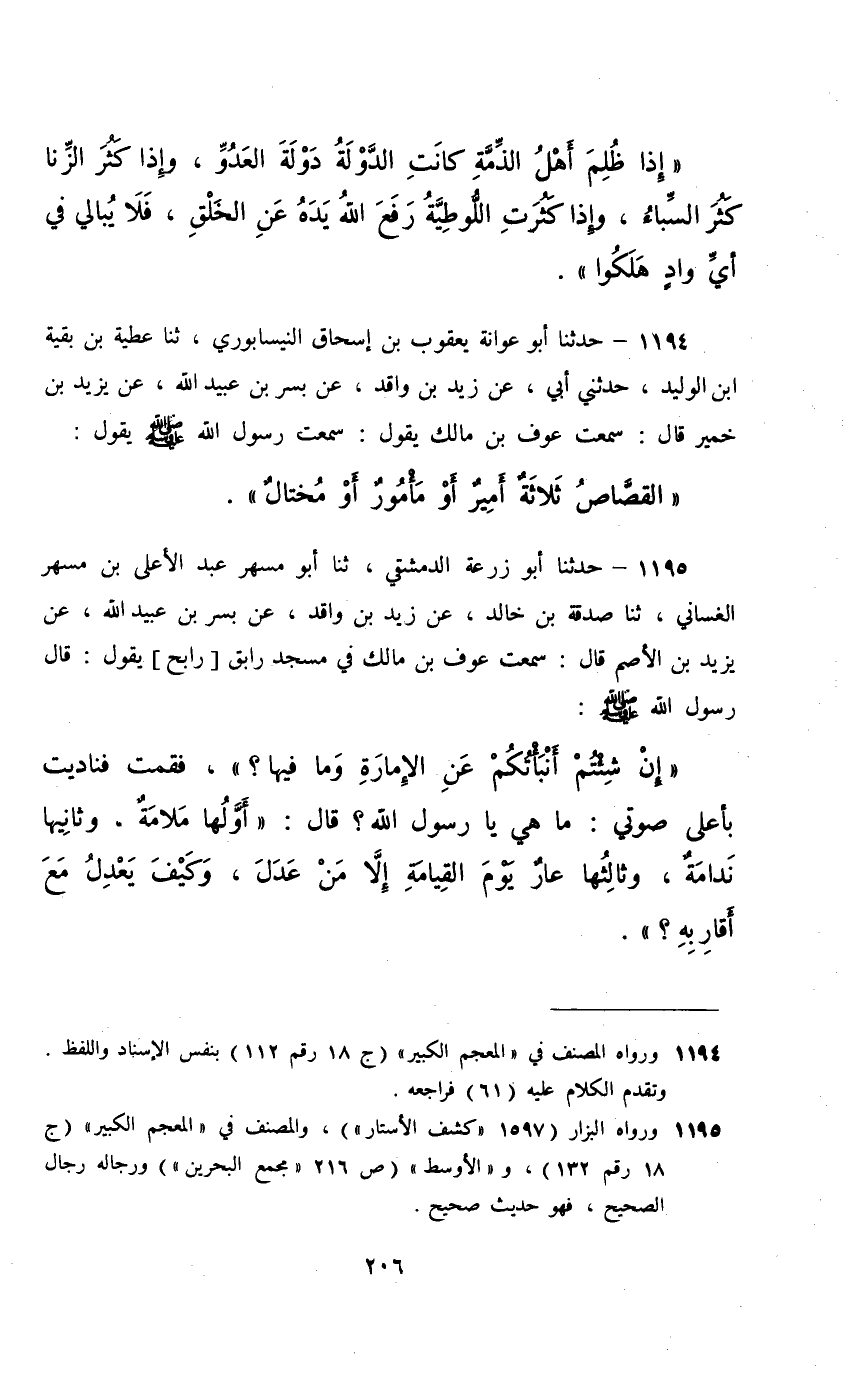 « إِذا ظُلِمَ أَهْلُ الذِّمَّةِ كانَتِ الدَّوْلَةُ دَوْلَةَ العَدُوِّ ، وإِذا كَثُرَ الزِّنا
كَثُرَ السِّباءُ ، وإِذا كَثُرَتِ اللُّوطِيَّةُ رَفَعَ اللهُ يَدَهُ عَنِ الخَلْقِ ، فَلَا يُبالي في
أيِّ وادٍ هَلَكُوا » .
١١٩٤ – حدثنا أبو عوانة يعقوب بن إسحاق النيسابوري ، ثنا عطية بن بقية
ابن الوليد ، حدثني أبي ، عن زيد بن واقد ، عن بسر بن عبيد الله ، عن يزيد بن
خمير قال : سمعت عوف بن مالك يقول : سمعت رسول الله ﷺ يقول :
« القصَّاصُ ثَلاثَةٌ أَمِيرٌ أَوْ مَأْمُورٌ أَوْ مُختالٌ » .
١١٩٥ – حدثنا أبو زرعة الدمشقي ، ثنا أبو مسهر عبد الأعلى بن مسهر
الغساني ، ثنا صدقة بن خالد ، عن زيد بن واقد ، عن بسر بن عبيد الله ، عن
يزيد بن الأصم قال : سمعت عوف بن مالك في مسجد رابق [ رابح ] يقول : قال
رسول الله ﷺ :
« إِنْ شِئْتُمْ أَنْبَأْتُكُمْ عَنِ الإِمارَةِ وَما فيها ؟ » ، فقمت فناديت
بأعلى صوتي : ما هي يا رسول الله ؟ قال : « أَوَّلُها مَلامَةٌ . وثانِيها
نَدامَةٌ ، وثالِثُها عارٌ يَوْمَ القِيامَةِ إِلَّا مَنْ عَدَلَ ، وَكَيْفَ يَعْدِلُ مَعَ
أَقارِبِهِ ؟ » .
١١٩٤ ورواه المصنف في « المعجم الكبير » ( ج ١٨ رقم ١١٢ ) بنفس الإسناد واللفظ .
وتقدم الكلام عليه ( ٦١ ) فراجعه .
١١٩٥ ورواه البزار ( ١٥٩٧ « كشف الأستار » ) ، والمصنف في « المعجم الكبير » ( ج
١٨ رقم ١٣٢ ) ، و « الأوسط » ( ص ٢١٦ « مجمع البحرين » ) ورجاله رجال
الصحيح ، فهو حديث صحيح .
٢٠٦